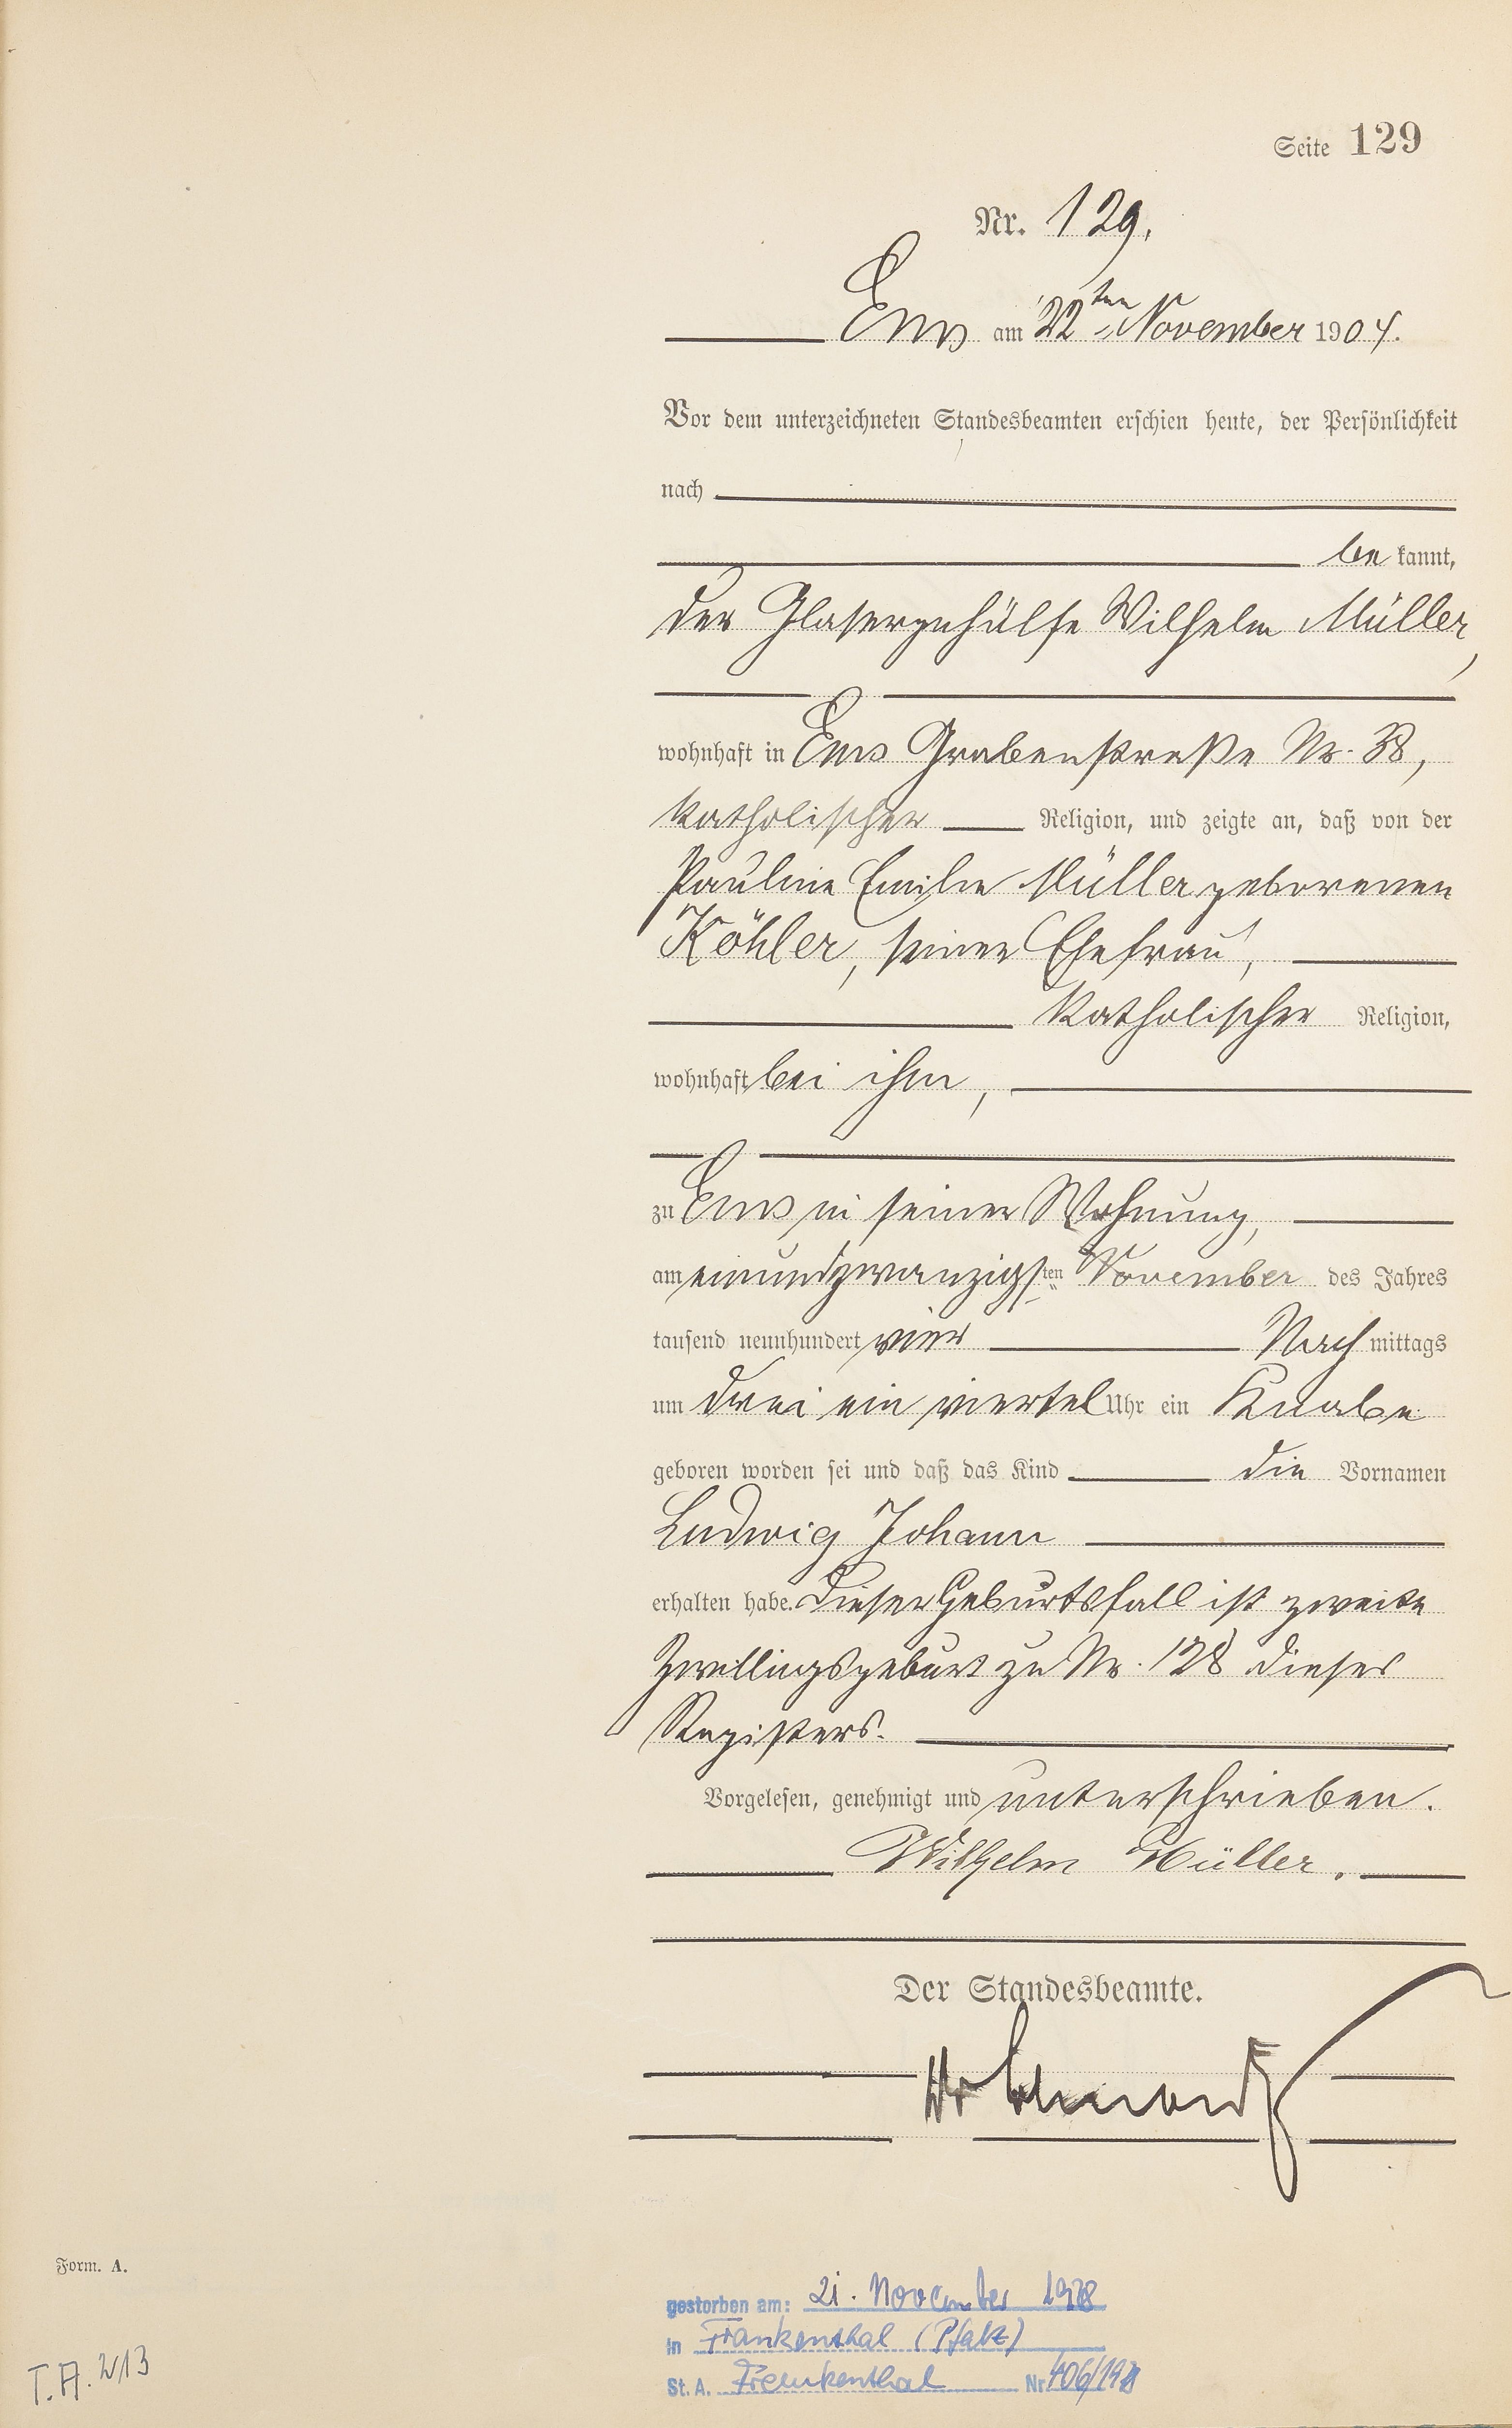 Seite 129
Nr. 129.
Ems am 22ten November 1904.
Vor dem unterzeichneten Standesbeamten erschien heute, der Persönlichkeit
nach
be kannt,
der Glasergehülfe Wilhelm Müller,
wohnhaft in Ems Grabenstraße Nr. 38,
katholischer Religion, und zeigte an, daß von der
Pauline Emilie Müller geborenen
Köhler, seiner Ehefrau,
katholischer Religion,
wohnhaft bei ihm,
zu Ems in seiner Wohnung,
am einundzwanzigsten November des Jahres
tausend neunhundert vier Nach mittags
um drei ein viertel Uhr ein Knabe
geboren worden sei und daß das Kind die Vornamen
Ludwig Johann
erhalten habe. Dieser Geburtsfall ist zweite
Zwillingsgeburt zu Nr. 128 dieses
Registers.
Vorgelesen, genehmigt und unterschrieben.
Wilhelm Müller.
Der Standesbeamte.
Form. A.
gestorben am: 21. November
in Frankenthal (Pfalz)
St. A. Frankenthal Nr.
T.A. 213